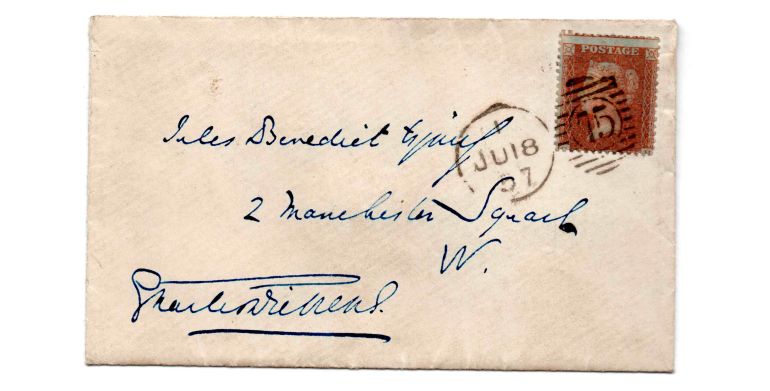 POSTAGE
Jules Benedict Esquire
JU 18
57
2 Manchester Square
W.
Charles Dickens.